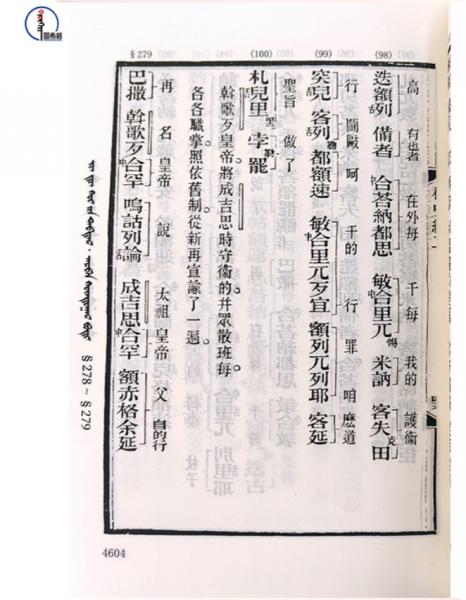 (98)
高 有也者 在外每 千每 我的 護衞
迭額列 備者 中合荅納都思 敏中合里兀惕 米訥 客失克田
(99)
行 鬭毆呵 千的行 罪咱 麽道
突兒 客列勒都額速 敏中合里兀歹宜 額列兀列耶 客延
(100)
聖旨 做了
札兒里黑 孛勒罷
斡歌歹皇帝將成吉思時守衞的并眾散班每。
各各職掌照依舊制從新再宣諭了一遍。
§279
再 名皇帝 說 太祖皇帝 父 自的行
巴撒 斡歌歹中合罕 嗚詁列論 成吉思中合罕 額赤格余延
§278～§279
4604